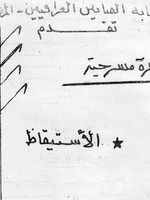 نقابة الفنانين العراقيين - ال
تقدم
مسرحية
★ الأستيقاظ